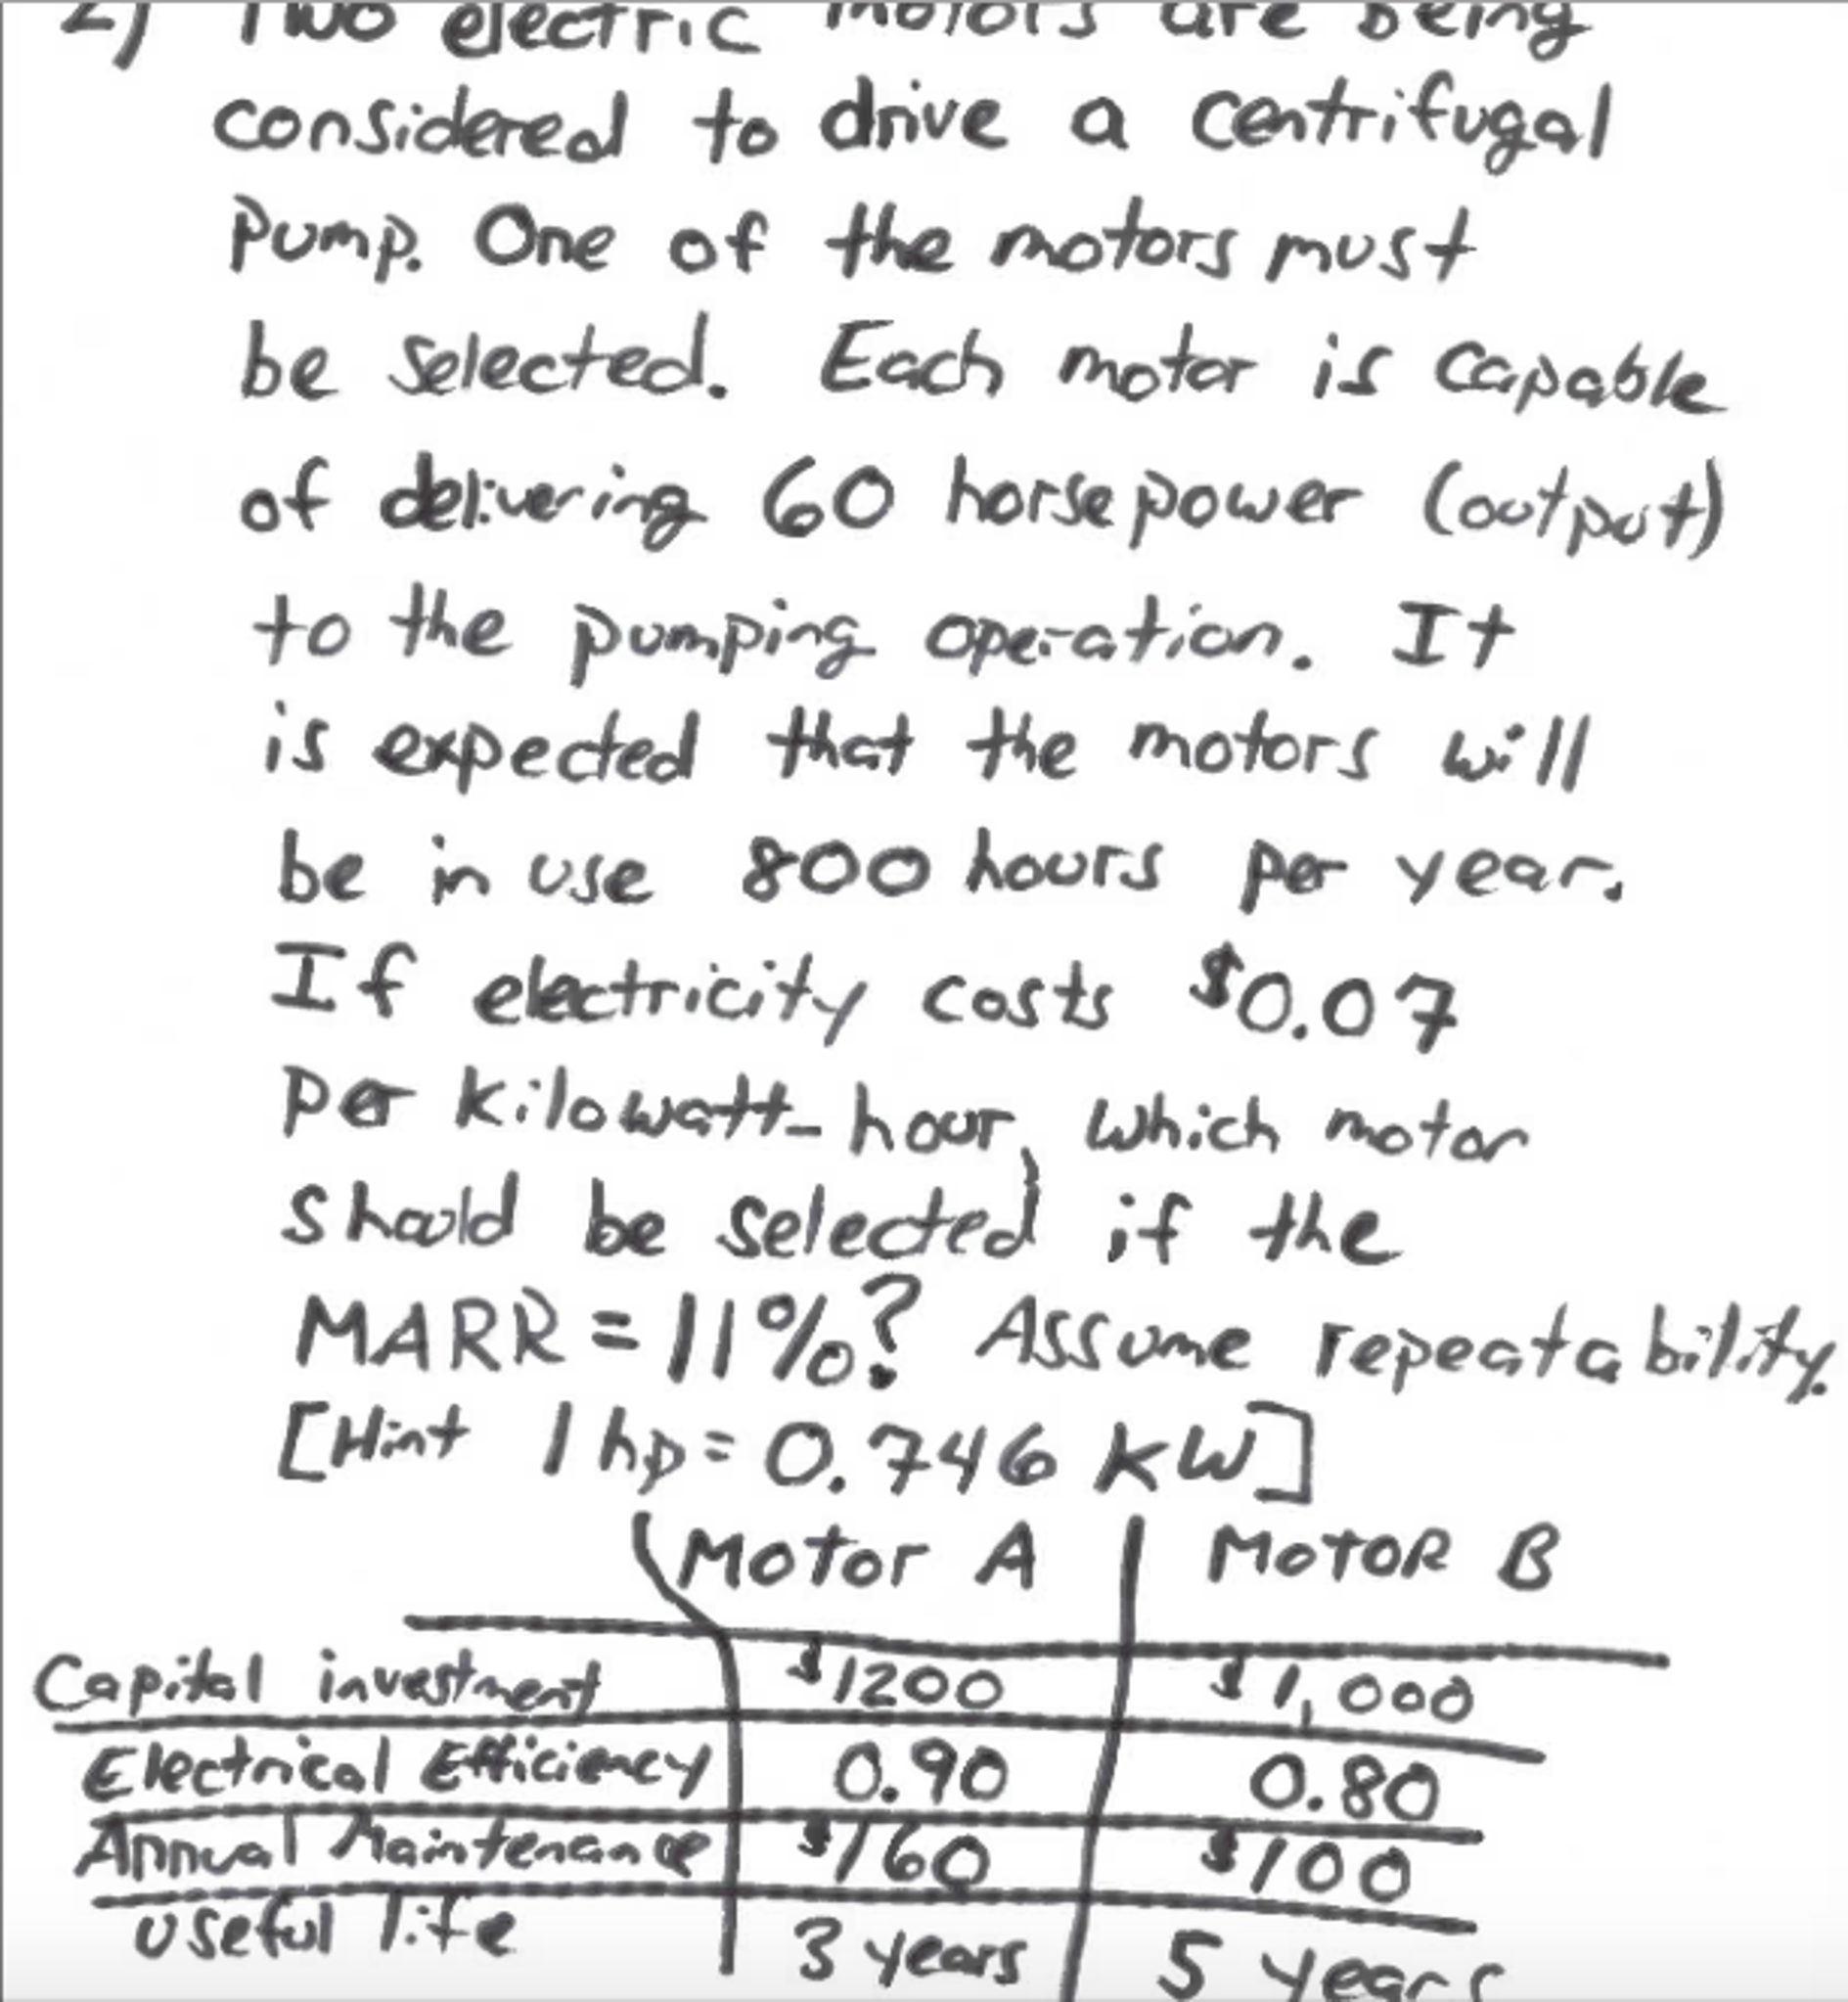 2) Two electric motors are being
considered to drive a centrifugal
pump. One of the motors must
be selected. Each motor is capable
of delivering 60 horsepower (output)
to the pumping operation. It
is expected that the motors will
be in use 800 hours per year.
If electricity costs $0.07
per kilowatt-hour, which motor
should be selected if the
MARR = 11%? Assume repeatability.
[Hint 1 hp = 0.746 kW]
Motor A MOTOR B
Capital investment $1200 $1,000
Electrical Efficiency 0.90 0.80
Annual Maintenance $160 $100
Useful life 3 years 5 years